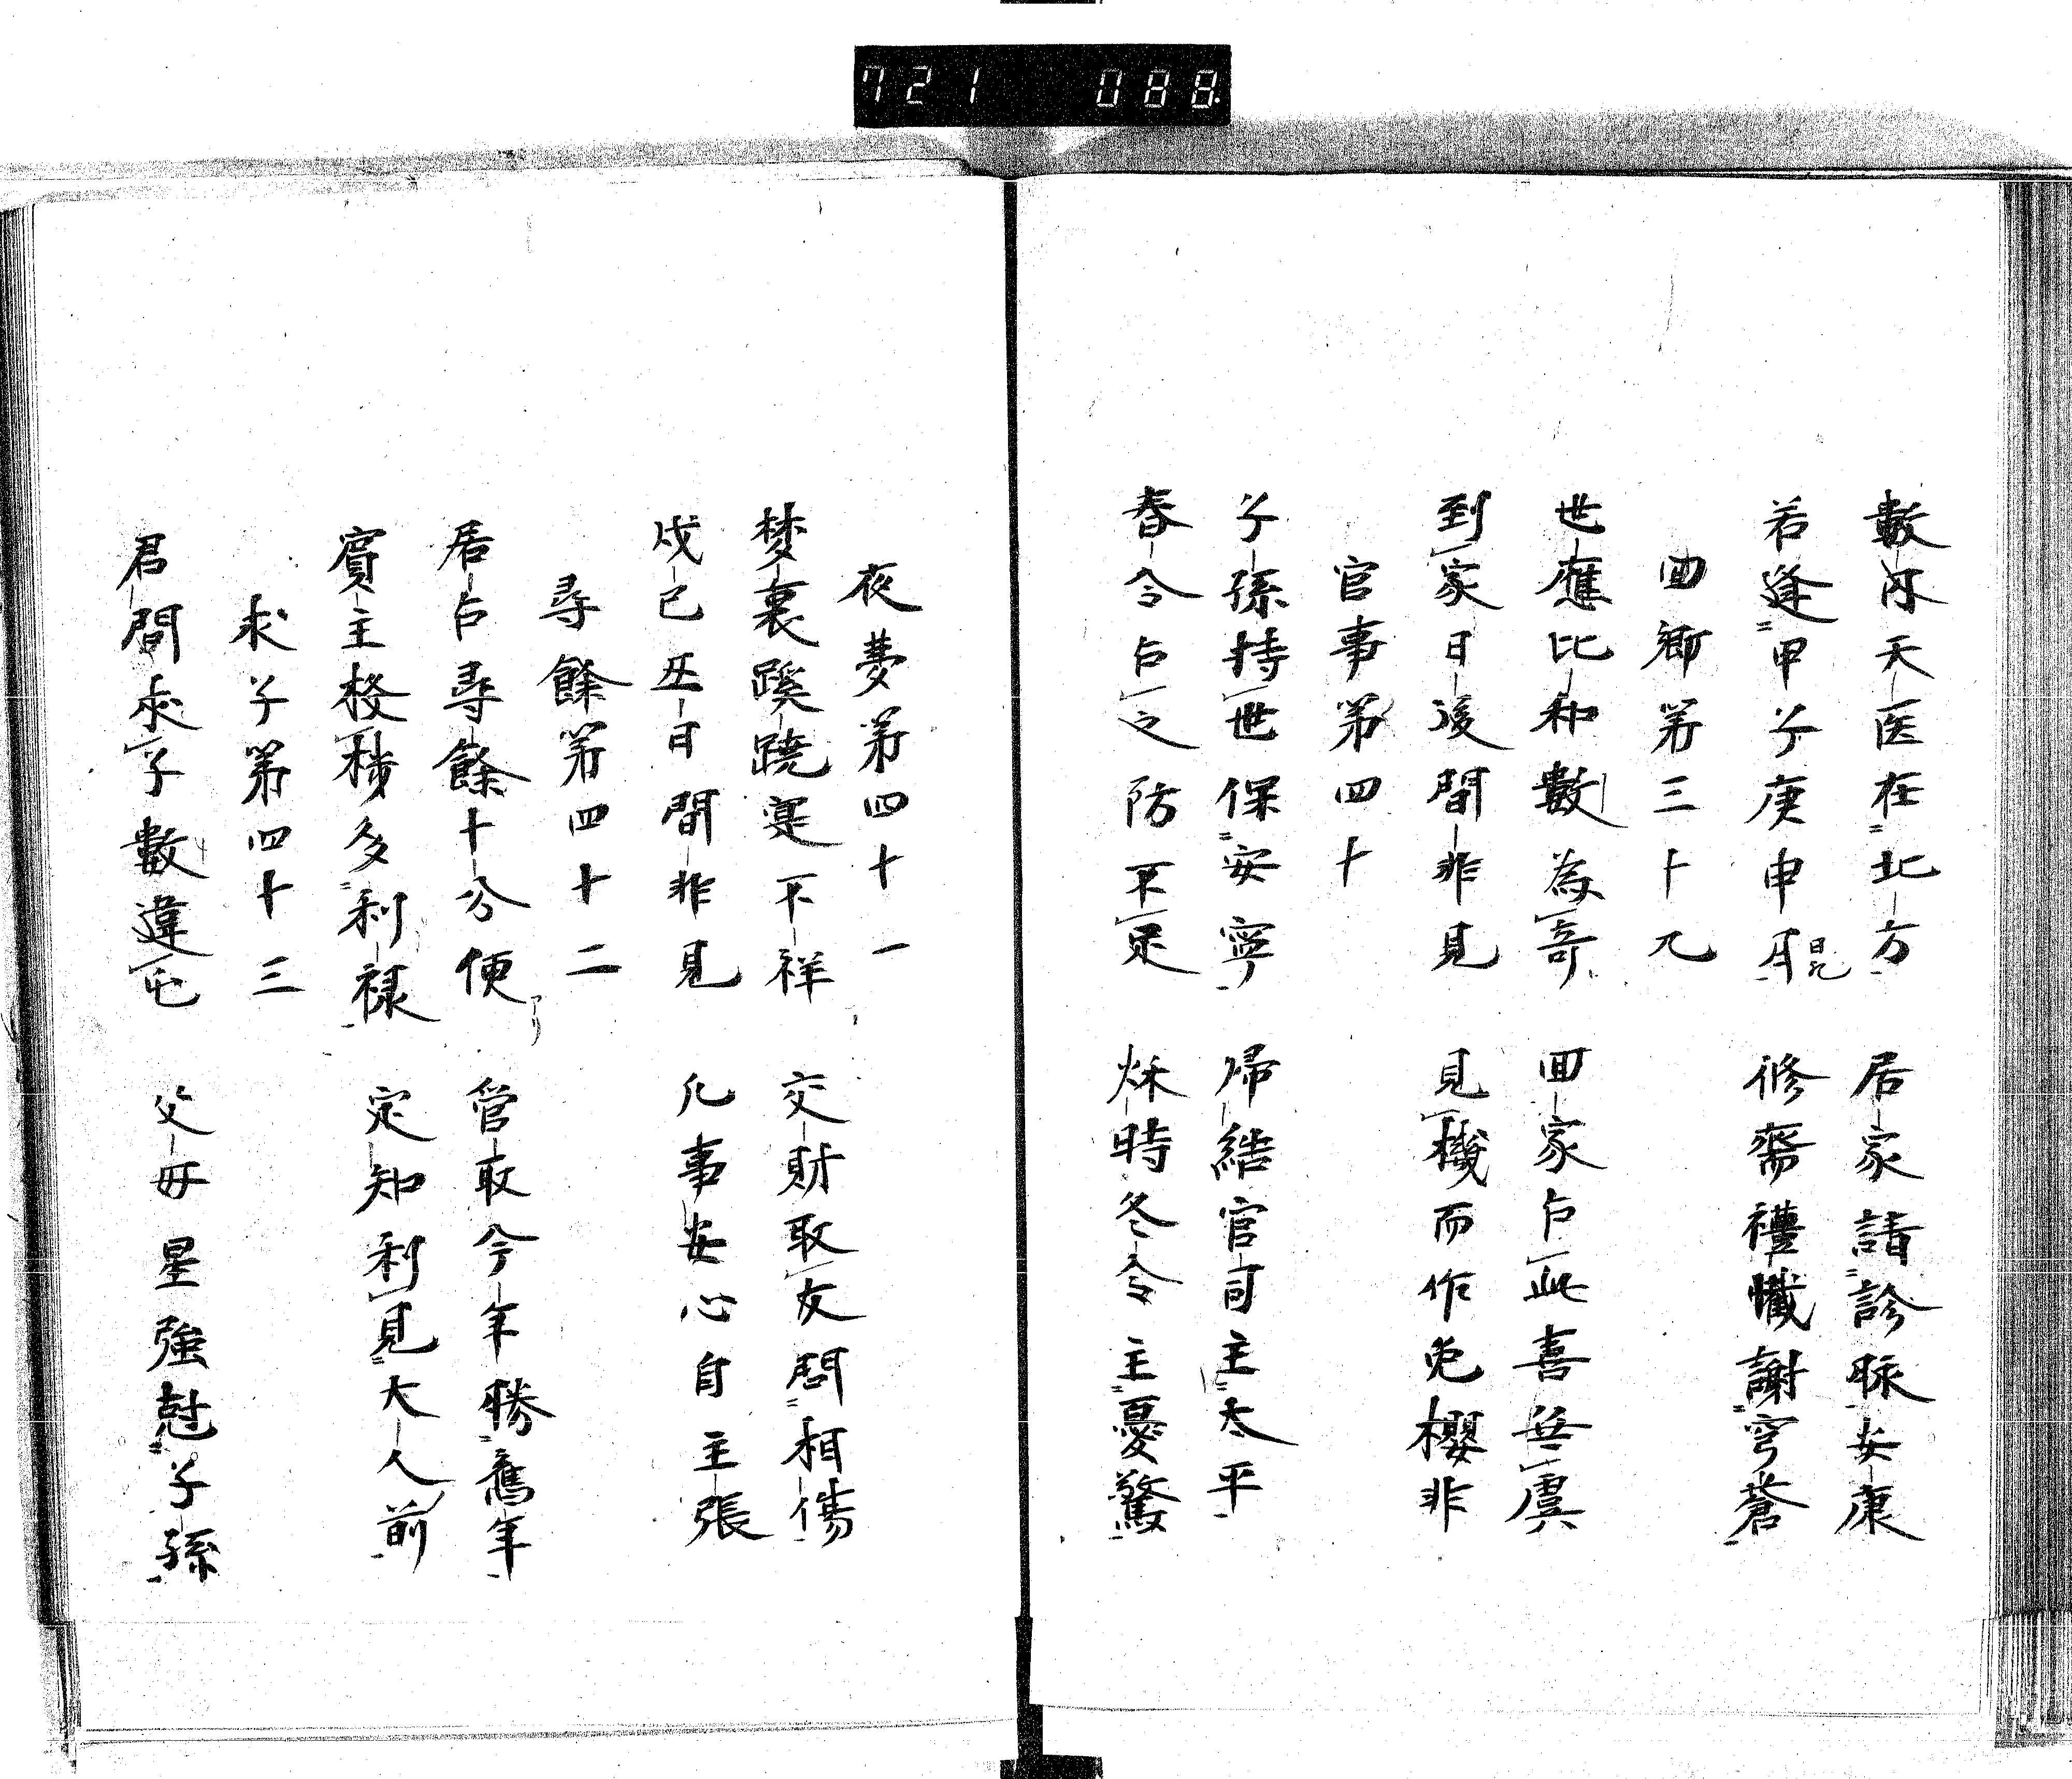 721 088
數尽天医在北方 居家請診脉安康
若逢甲子庚申日 修齋禮懺謝穹蒼
回鄉第三十九
世應比和數為奇 回家占此喜無虞
到家日後間非見 見機而作免櫻非
官事第四十
子孫持世保安寧 帰結官司主太平
春令占之防不足 秌時冬令主憂驚
夜夢第四十一
梦裏蹊蹺寔不祥 交財取友問相傷
戊己丑日間非見 凡事安心自主張
尋館第四十二
居占尋館十分便 管取今年勝舊年
賓主挍棲多利禄 定知利見大人前
求子第四十三
君問求子數違屯 父母星強尅子孫